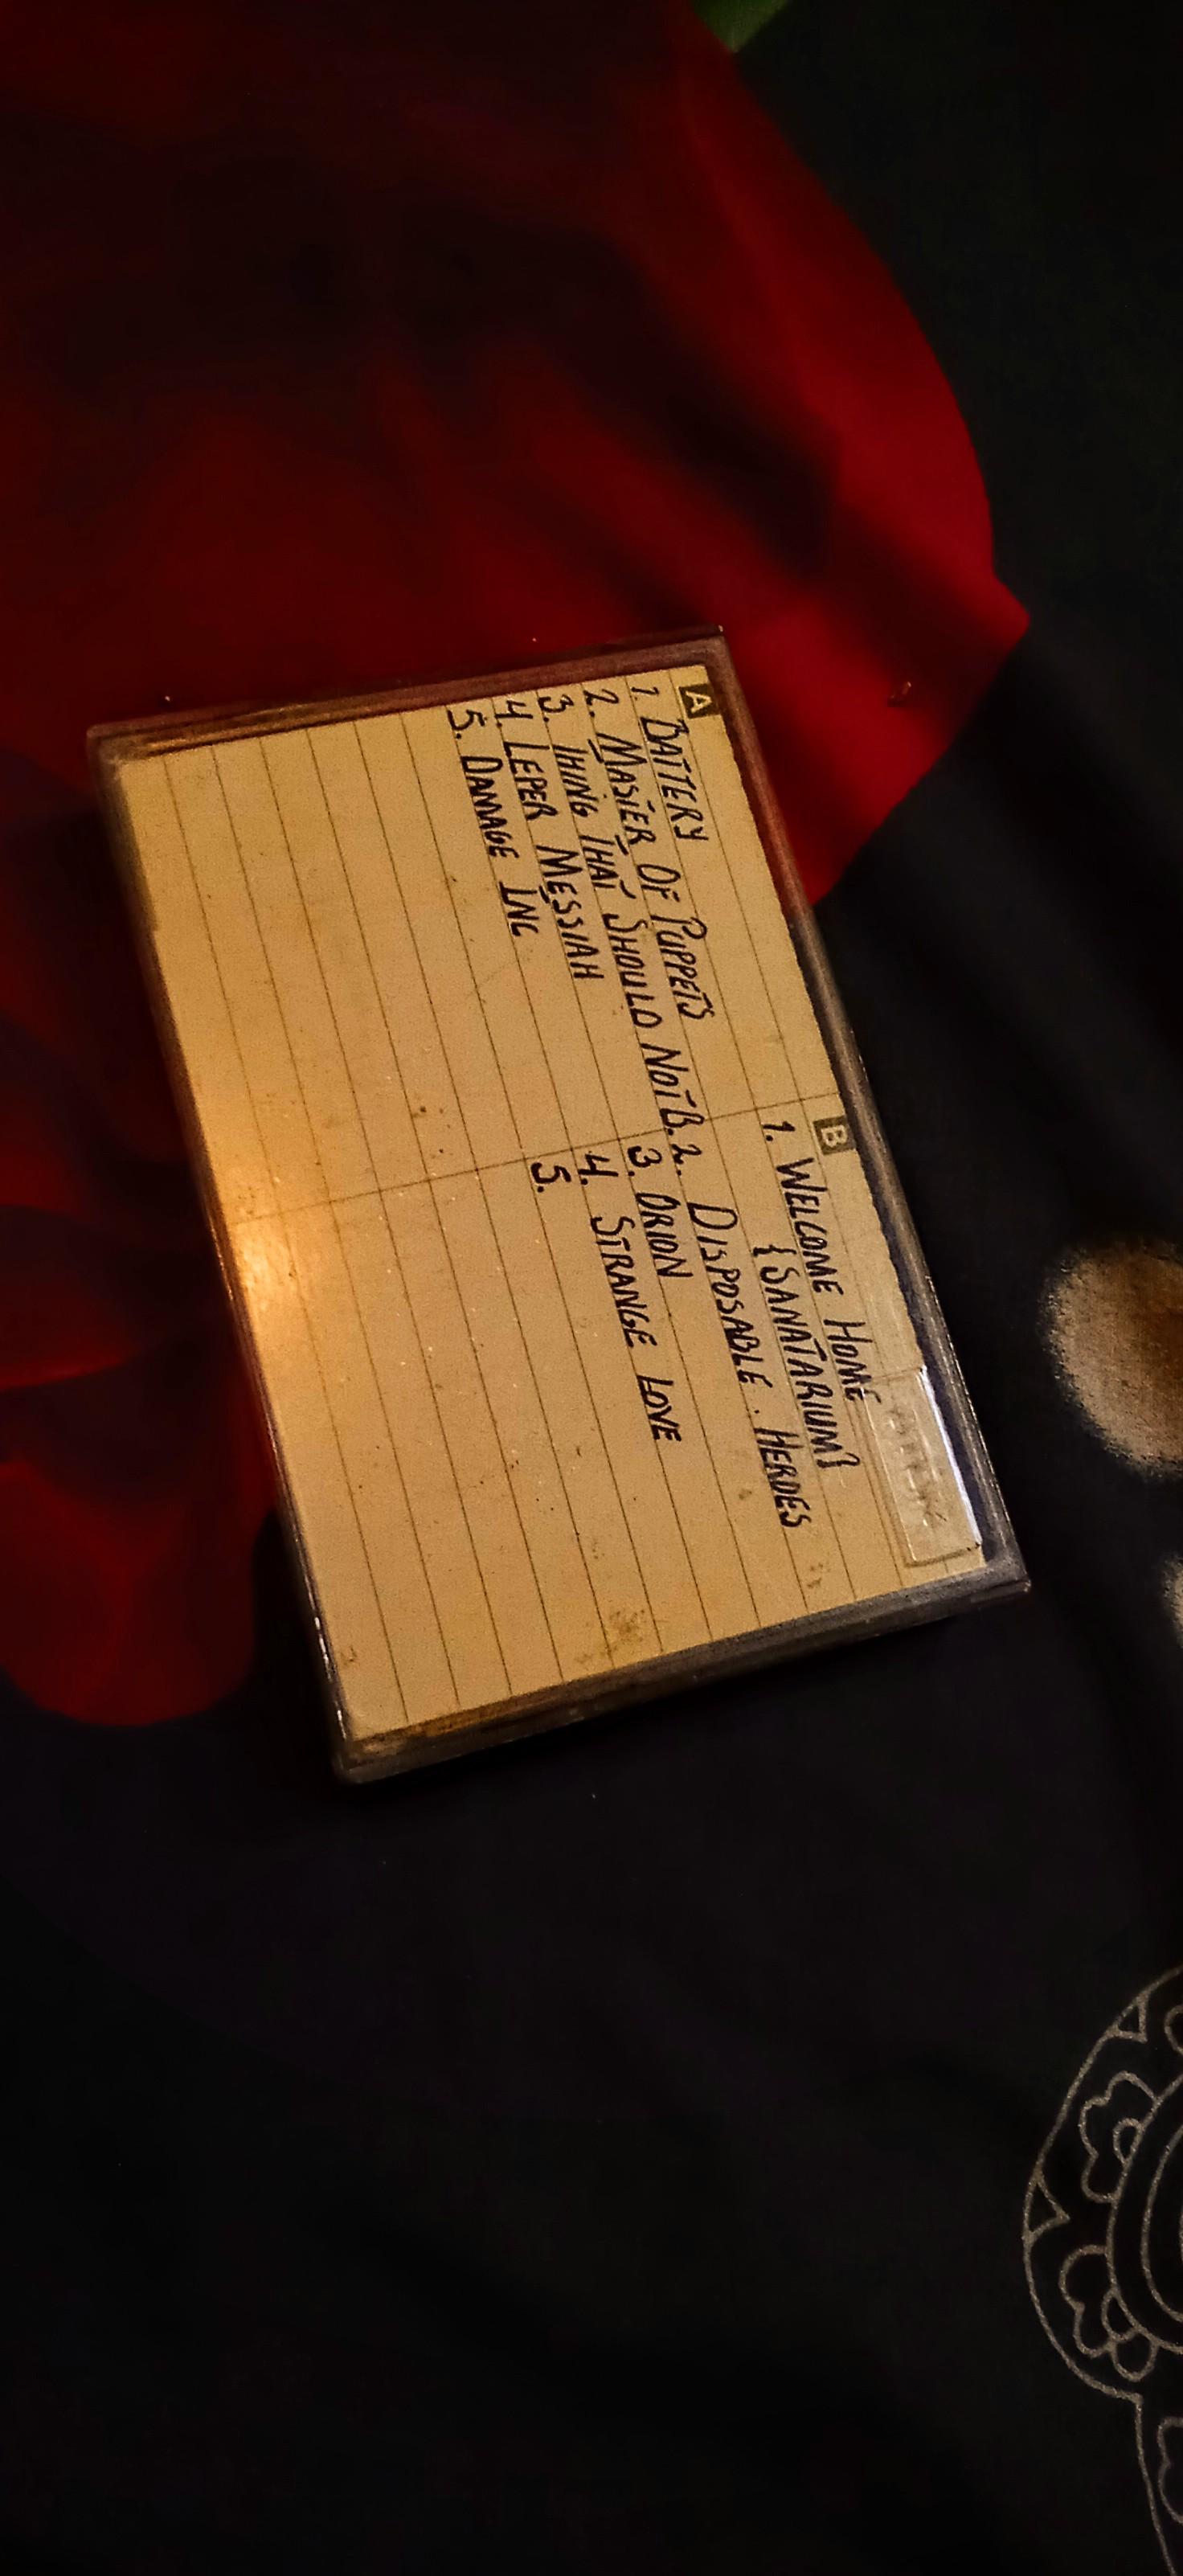 A
1. BATTERY
2. MASTER OF PUPPETS
3. THING THAT SHOULD NOT B.
4. LEPER MESSIAH
5. DAMAGE INC
B
1. WELCOME HOME
{SANATARIUM}
2. DISPOSABLE. HEROES
3. ORION
4. STRANGE LOVE
5.